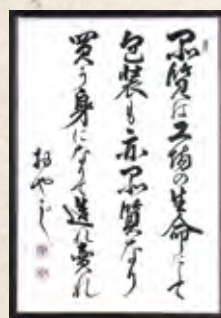 品質は工場の生命にして
包装も亦品質なり
買う身になりて造れ売れ
おやじ